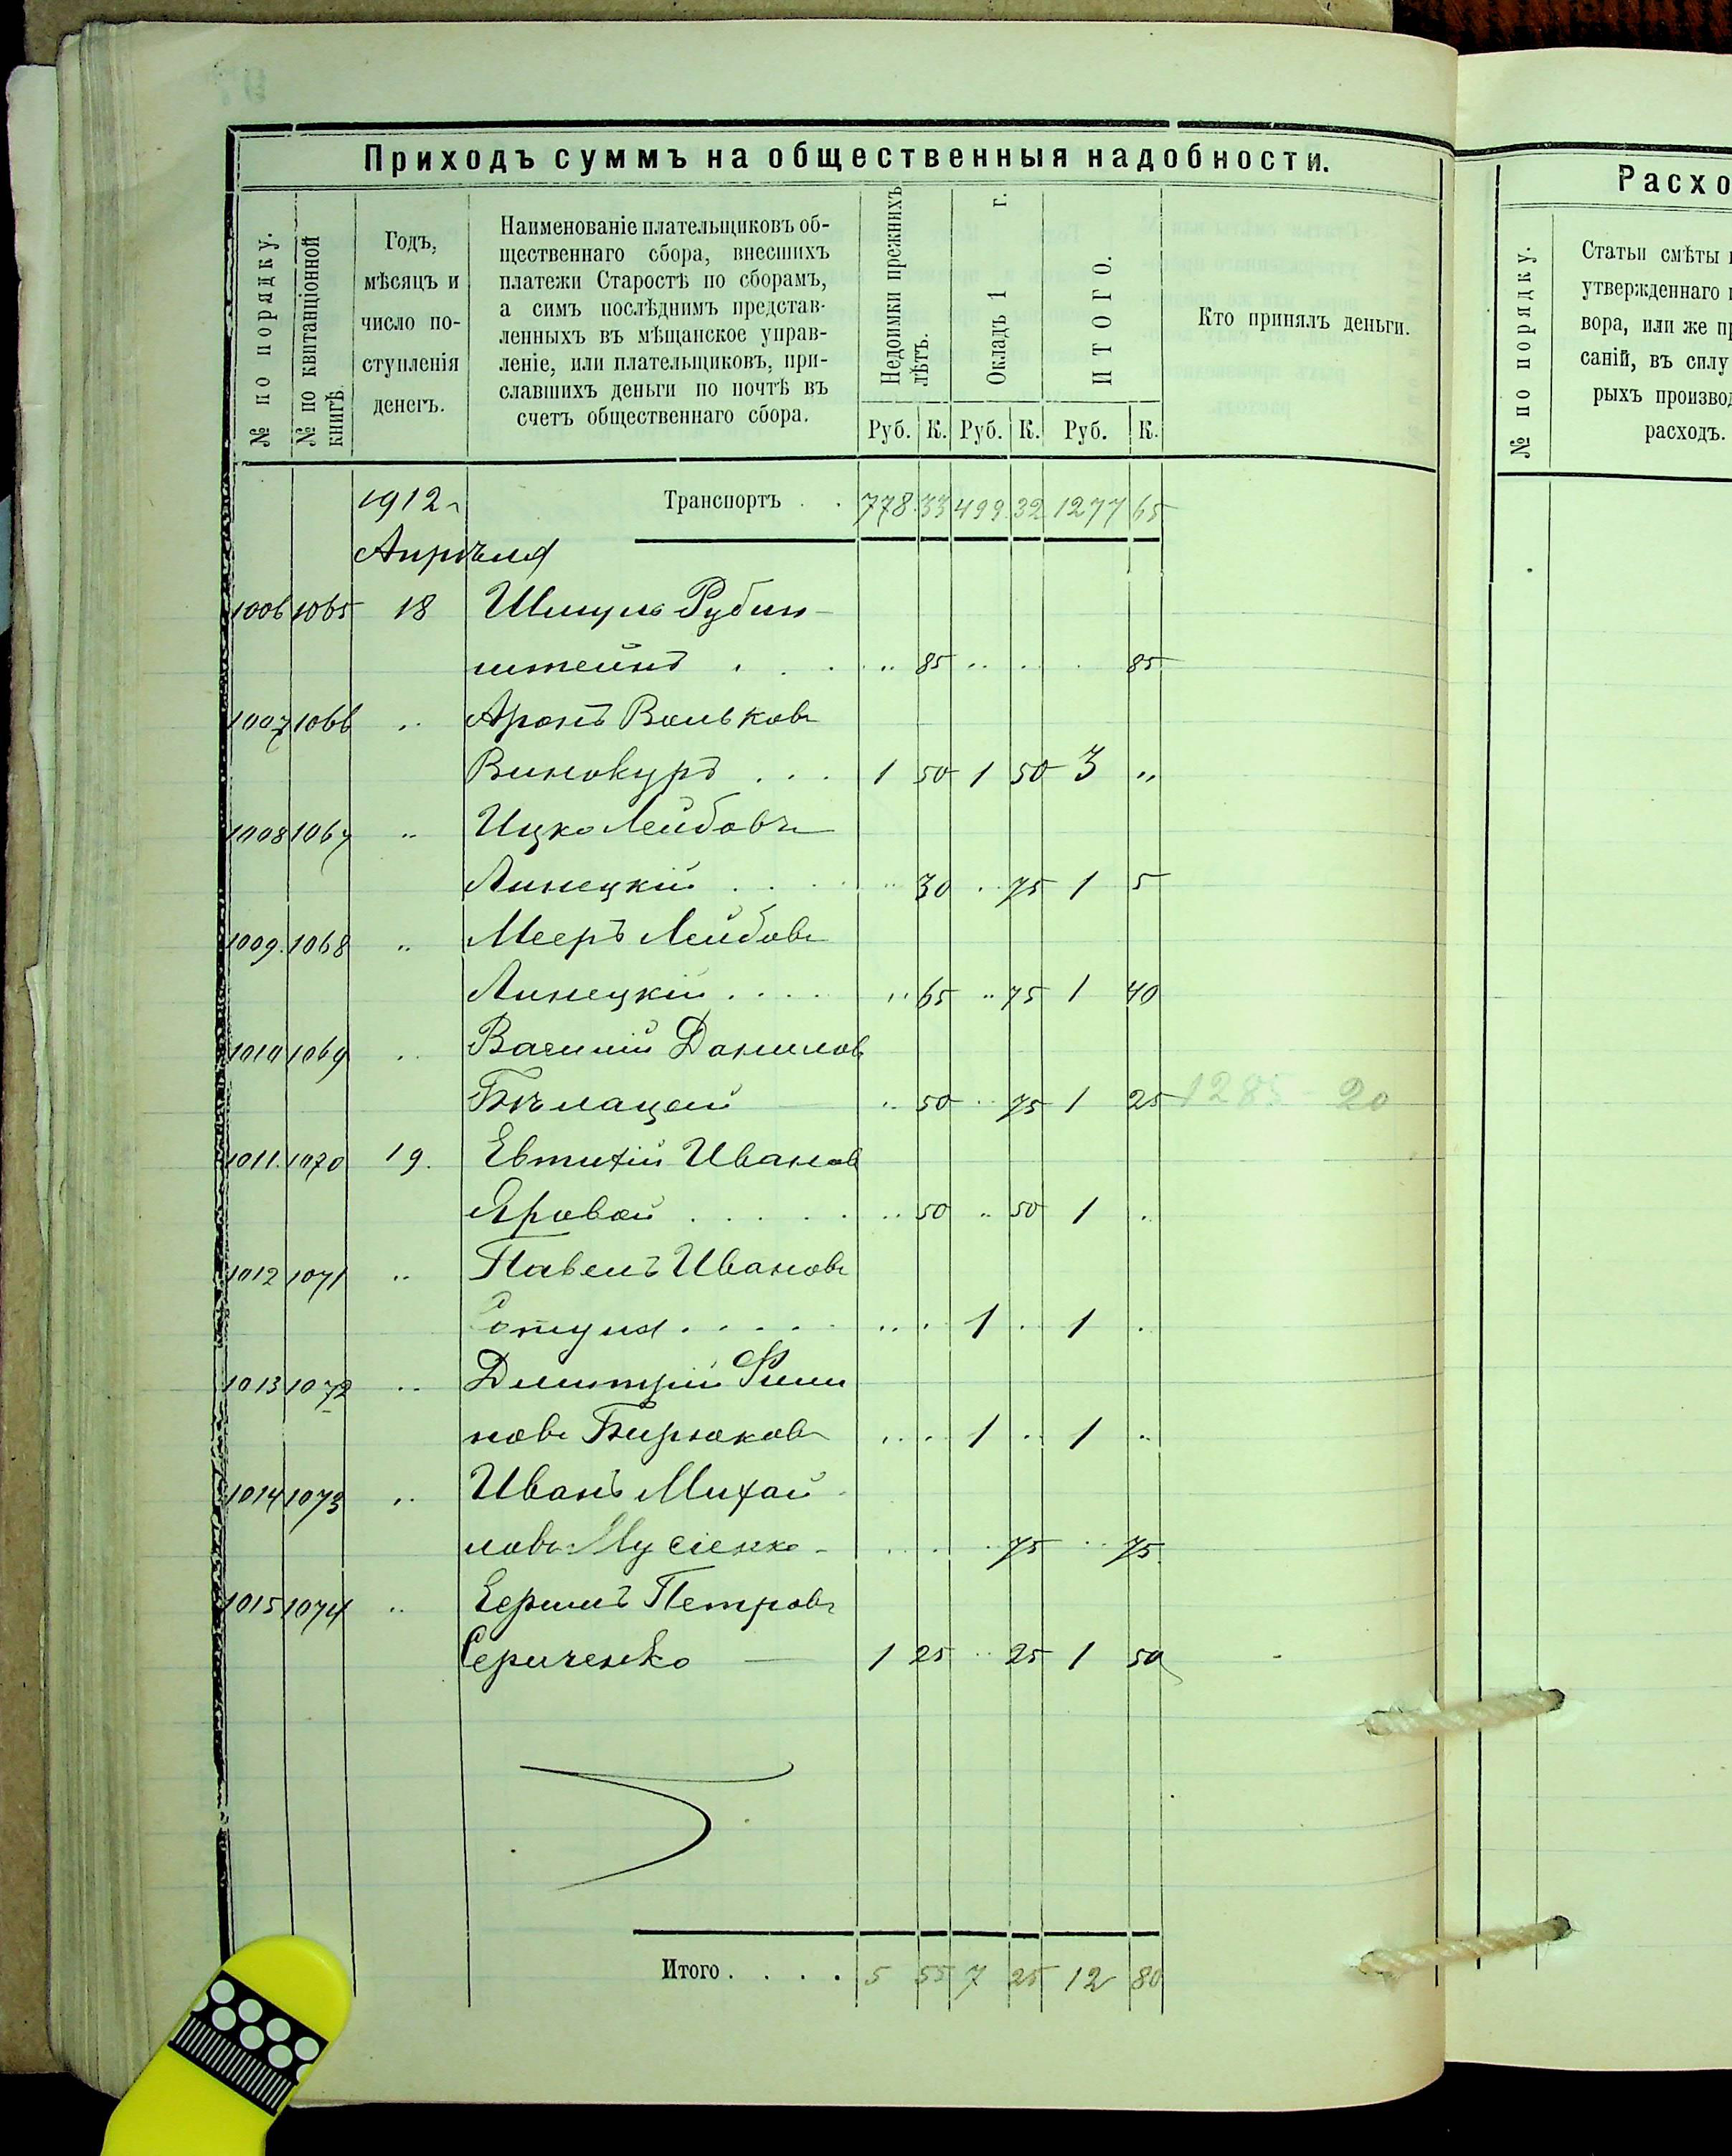 Приходъ суммъ на общественныя надобности.
№ по порядку.
№ по квитанціонной книгѣ.
Годъ,
мѣсяцъ и
число по-
ступленія
денегъ.
Наименованіе плательщиковъ об-
щественнаго сбора, внесшихъ
платежи Старостѣ по сборамъ,
а симъ послѣднимъ представ-
ленныхъ въ мѣщанское управ-
леніе, или плательщиковъ, при-
славшихъ деньги по почтѣ въ
счетъ общественнаго сбора.
Недоимки прежнихъ лѣтъ.
Окладъ 1 г.
ИТОГО.
Кто принялъ деньги.
Руб. К. Руб. К. Руб. К.
1912 Транспортъ . . 778 33 499 32 1277 65
Апрѣля
1006 1065 18 Шмуль Рубин-
штейнъ . . . „ 85 „ . . 85
1007 1066 „ Аронъ Вольковъ
Винокуръ . . . 1 50 1 50 3 „
1008 1067 „ Ицко Лейбовъ
Линецкій . . . „ 30 „ 75 1 5
1009. 1068 „ Мееръ Лейбовъ
Линецкій . . . . „ 65 „ 75 1 40
1010 1069 „ Василій Данилов
Бѣлацей — „ 50 „ 75 1 25 1285 - 20
1011. 1070 19. Евтихій Иванов
Яровой . . . . . „ 50 „ 50 1 .
1012 1071 „ Павелъ Ивановъ
. . . . . „ . 1 . 1 .
1013 1072 „ Дмитрій Фили
повъ Бирюковъ . . . 1 . 1 „
1014 1073 „ Иванъ Михай-
ловъ Мусіенко - . . . 75 „ 75
1015 1074 „ Петровъ
Сериченко — 1 25 „ 25 1 50
Итого . . . . 5 55 7 25 12 80
Расхо
№ по порядку.
Статьи смѣты
утвержденнаго
вора, или же пр
саній, въ силу
рыхъ производ
расходъ.